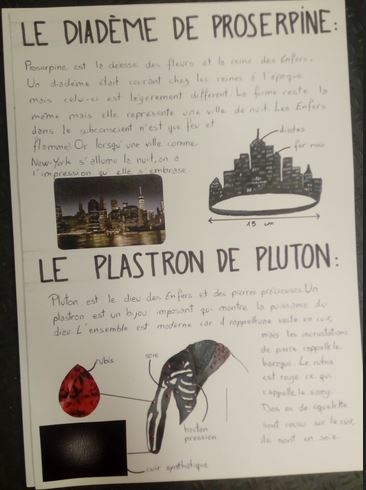 LE DIADÈME DE PROSERPINE:
Proserpine est la déesse des fleurs et la reine des Enfers.
Un diadème était courant chez les reines à l'époque
mais celui-ci est légèrement différent. La forme reste la
même mais elle représente une ville de nuit. Les Enfers
dans le subconscient n'est que feu et
flamme! Or lorsqu'une ville comme
New-York s'allume la nuit, on a
l'impression qu'elle s'embrase.
diodes
fer noir
15 cm
LE PLASTRON DE PLUTON:
Pluton est le dieu des Enfers et des pierres précieuses. Un
plastron est un bijou imposant qui montre la puissance du
dieu. L'ensemble est moderne car il rappelle une veste en cuir,
mais les incrustations
de pierre rappelle le
baroque. Le rubis
est rouge ce qui
rappelle le sang.
Des os de squelette
sont cousu sur le cuir,
ils sont en soie.
rubis
soie
bouton
pression
cuir synthétique